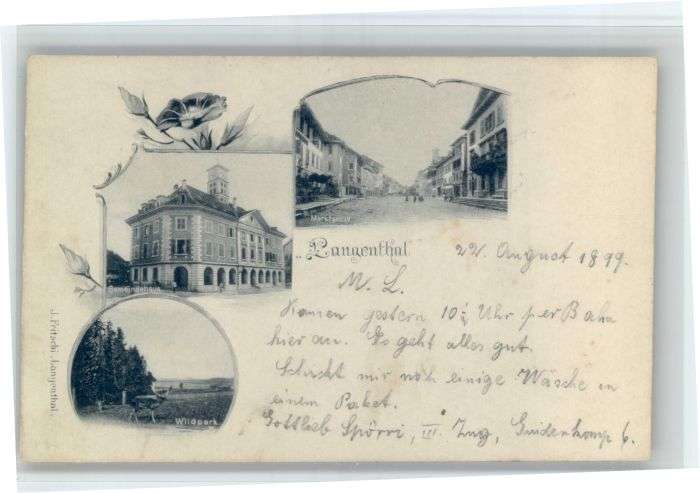 Marktgasse
„Langenthal"
22. August 1899.
Gemeindehaus
M. L.
Kamen gestern 10¼ Uhr per Bahn
hier an. Es geht alles gut.
Schickt mir noch einige Wäsche in
einem Paket.
Gottlieb Spörri, III. Zug, Guidenkomp 6.
Wildpark
J. Fritschi, Langenthal.